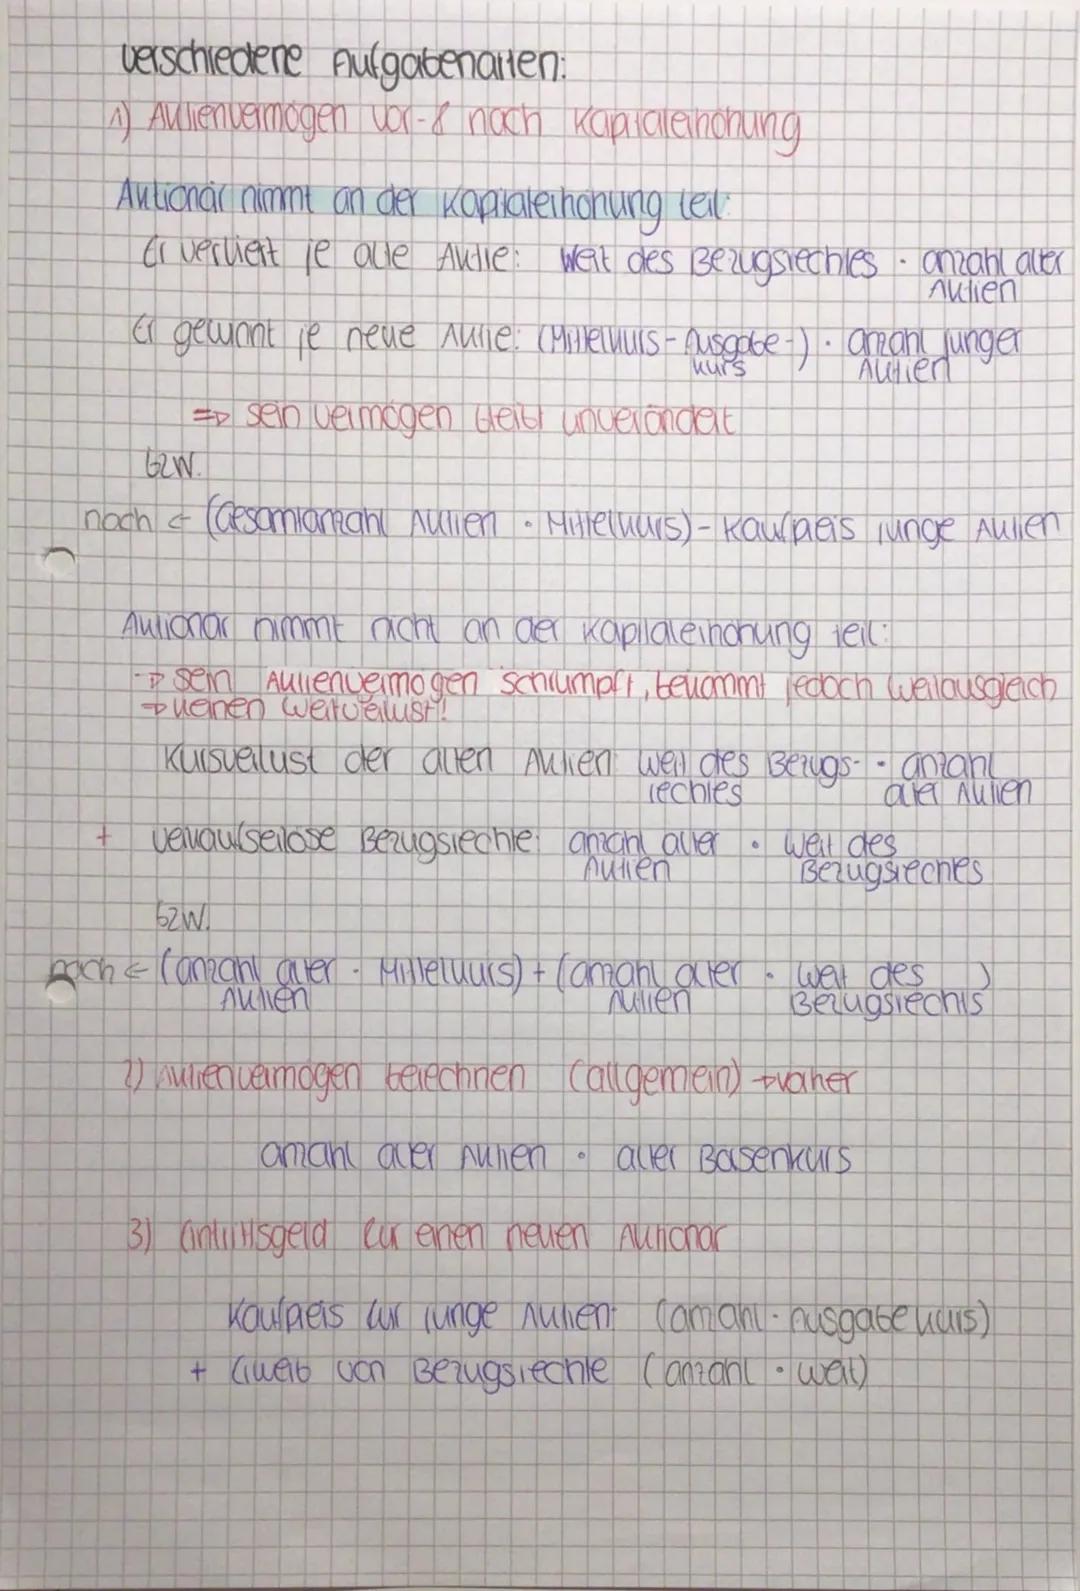 verschiedene Aufgabenarten:
1) Aktienvermögen vor- & nach Kapitalerhöhung
Aktionär nimmt an der Kapitalerhöhung teil:
Er verliert je alte Aktie: Wert des Bezugsrechtes · anzahl alter
Aktien
Er gewinnt je neue Aktie: (Mittelkurs - Ausgabe-) · anzahl junger
kurs Aktien
=> sein Vermögen bleibt unverändert
bzw.
nach ← (Gesamtanzahl Aktien · Mittelkurs) - Kaufpreis junge Aktien
Aktionär nimmt nicht an der Kapitalerhöhung teil:
→ sein Aktienvermögen schrumpft, bekommt jedoch Wertausgleich
→ keinen Wertverlust!
Kursverlust der alten Aktien: Wert des Bezugs- · anzahl
rechtes alter Aktien
+ Verkaufserlöse Bezugsrechte: anzahl alter · Wert des
Aktien Bezugsrechtes
bzw.
nach ← (anzahl alter · Mittelkurs) + (anzahl alter · Wert des )
Aktien Aktien Bezugsrechts
2) Aktienvermögen berechnen (allgemein) → vorher
anzahl alter Aktien · alter Börsenkurs
3) Eintrittsgeld für einen neuen Aktionär
Kaufpreis für junge Aktien: (anzahl · Ausgabekurs)
+ Erwerb von Bezugsrechte (anzahl · Wert)